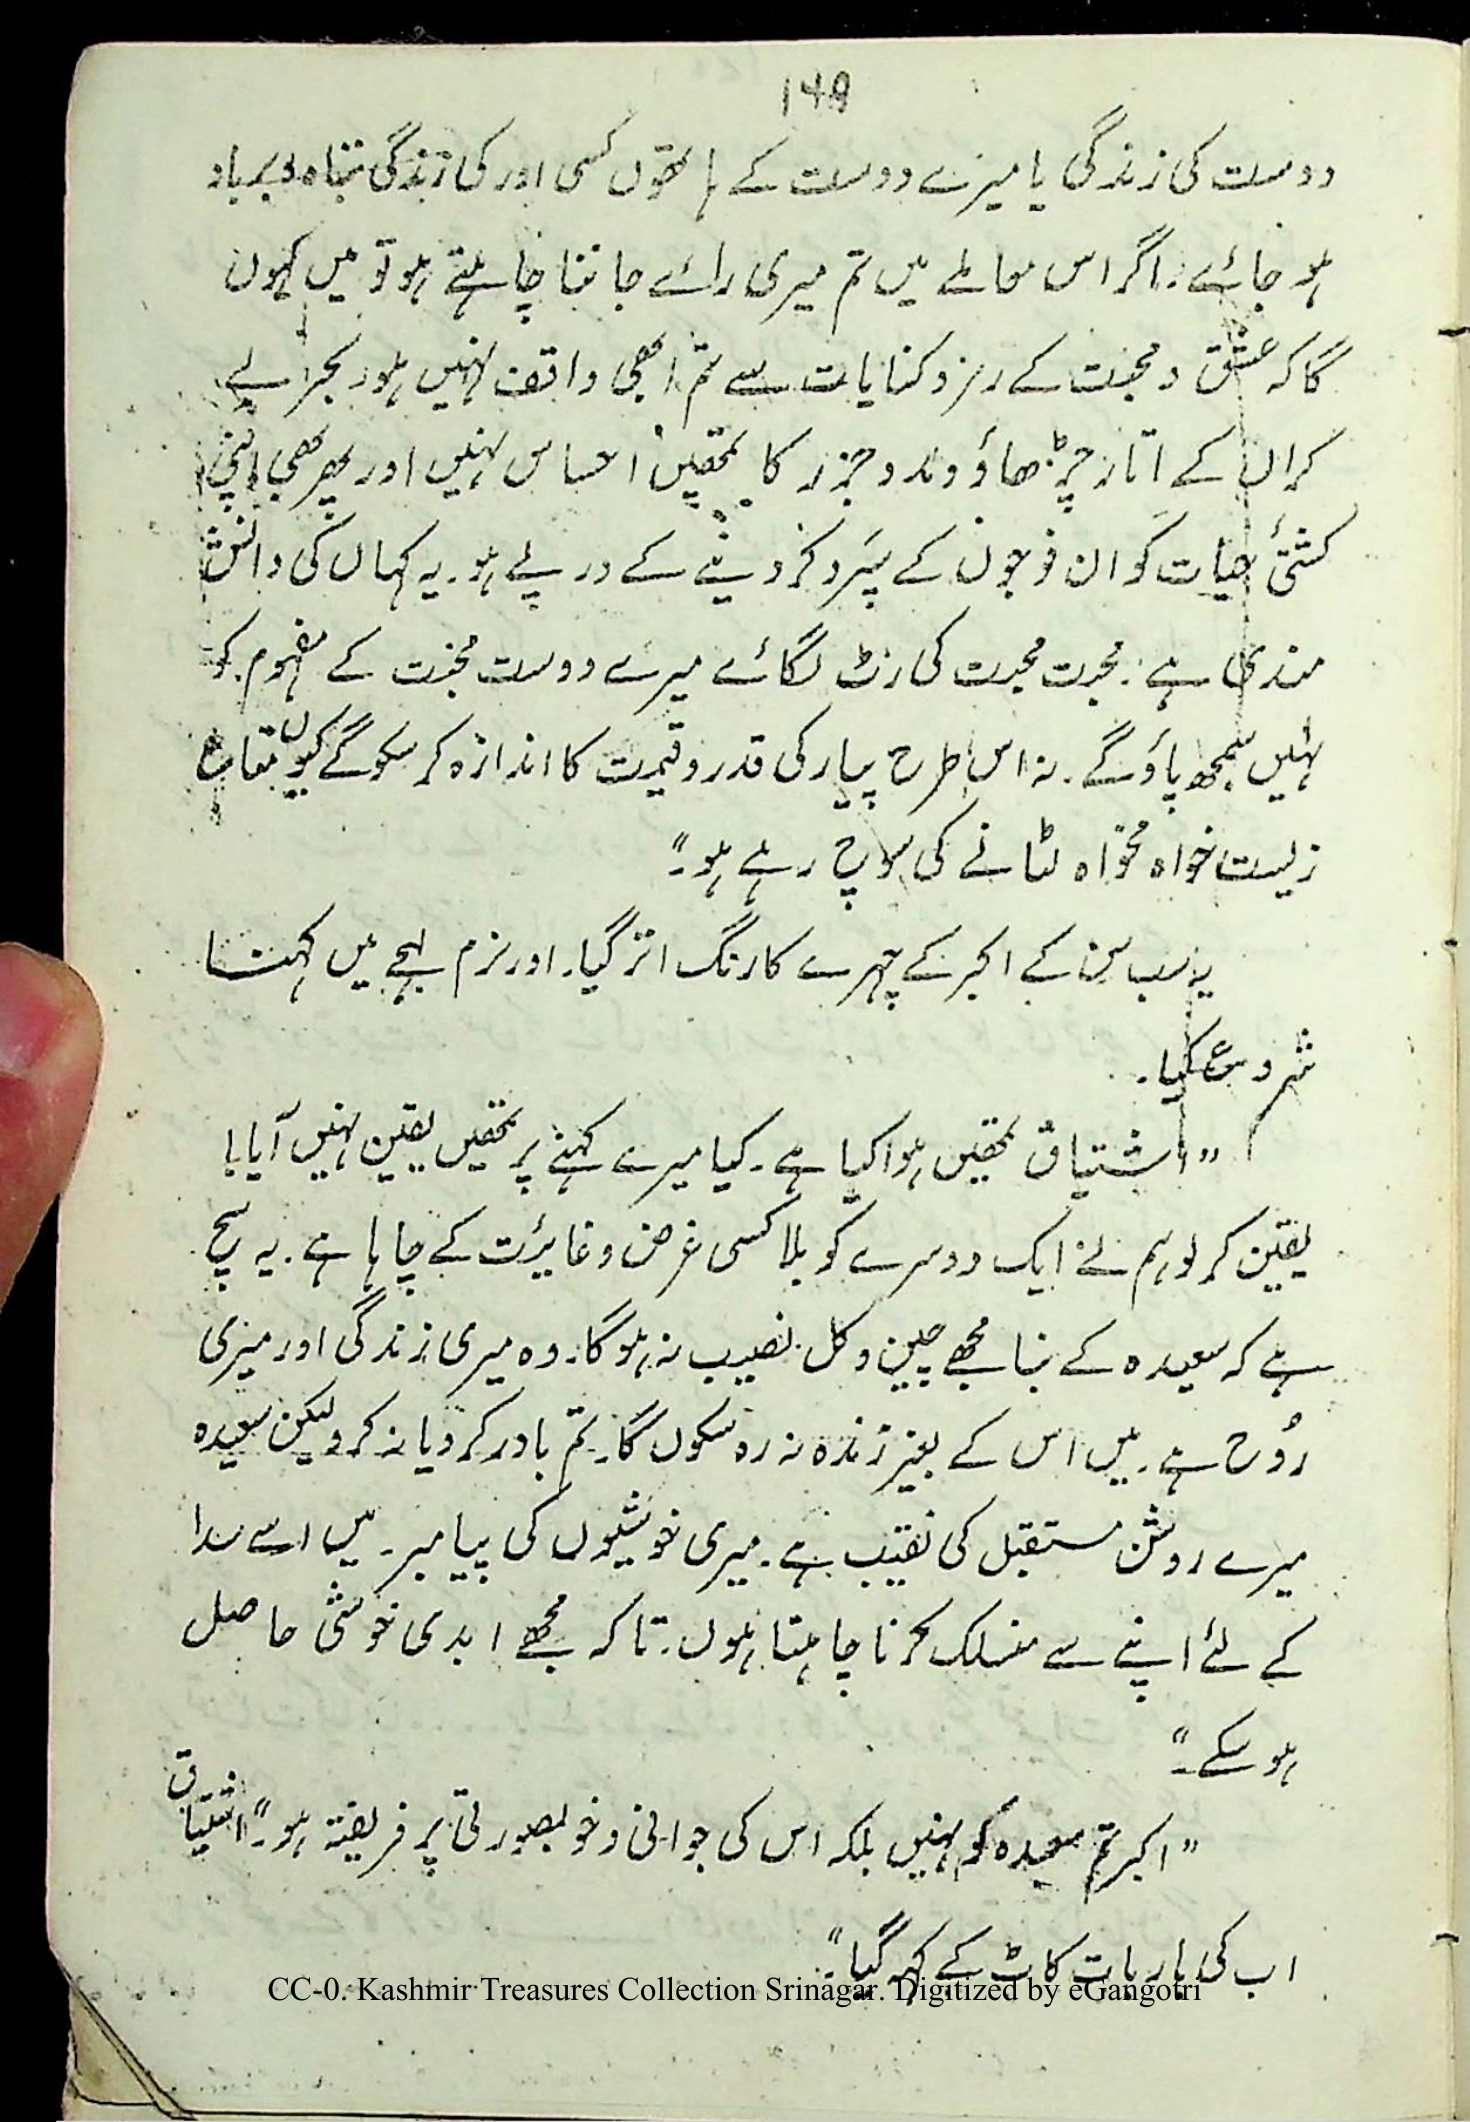 149
دوست کی زندگی یا میرے دوست کے ہاتھوں کسی اور کی زندگی تباہ و برباد
ہو جائے۔ اگر اس معاملے میں تم میری رائے جاننا چاہتے ہو تو میں کہوں
گا کہ عشق و محبت کے رمز و کنایات سے تم ابھی واقف نہیں ہو۔ بحر بے
کراں کے اتار چڑھاؤ و مد و جزر کا تمھیں احساس نہیں اور پھر بھی اپنی
کشتئ حیات کو ان فوجوں کے سپرد کر دینے کے درپے ہو۔ یہ کہاں کی دانش
مندی ہے۔ محبت محبت کی رٹ لگائے میرے دوست محبت کے مفہوم کو
نہیں سمجھ پاؤ گے۔ نہ اس طرح پیار کی قدر و قیمت کا اندازہ کر سکو گے کیوں متاع
زلیست خواہ مخواہ لٹانے کی سوچ رہے ہو۔"
یہ سب سن کے اکبر کے چہرے کا رنگ اتر گیا۔ اور نرم لہجے میں کہنا
شروع کیا۔
"اشتیاق تمھیں ہوا کیا ہے۔ کیا میرے کہنے پر تمھیں یقین نہیں آیا!
یقین کر لو ہم نے ایک دوسرے کو بلا کسی غرض و غایئت کے چاہا ہے۔ یہ سچ
ہے کہ سعیدہ کے بنا مجھے چین و کل نصیب نہ ہو گا۔ وہ میری زندگی اور میری
رُوح ہے۔ میں اس کے بغیر زندہ نہ رہ سکوں گا۔ تم باور کرو یا نہ کرو لیکن سعیدہ
میرے روشن مستقبل کی نقیب ہے۔ میری خوشیوں کی پیامبر۔ میں اسے سدا
کے لئے اپنے سے منسلک کرنا چاہتا ہوں۔ تاکہ مجھے ابدی خوشی حاصل
ہو سکے۔"
"اکبر تم سعیدہ کو نہیں بلکہ اس کی جوانی و خوبصورتی پر فریفتہ ہو۔" اشتیاق
اب کی بار بات کاٹ کے کہہ گیا۔"
CC-0. Kashmir Treasures Collection Srinagar. Digitized by eGangotri